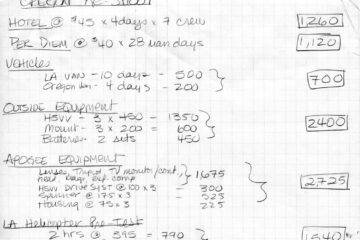 OREGON PRE-SHOOT
HOTEL @ $45 x 4 days x 7 crew 1,260
PER DIEM @ $40 x 28 man days 1,120
VEHICLES
LA VAN - 10 days - 500
Oregon Van - 4 days - 200 700
OUTSIDE EQUIPMENT
HSVV - 3 x 450 - 1350
Mount - 3 x 200 = 600 2400
Batteries 2 sets 450
APOGEE EQUIPMENT
Lenses, Tripod, TV monitor/cont. 1,675
HSVV DRIVE SYST @ 100 x 3 - 300 2,725
Spinner @ 175 x 3 - 525
Housing @ 75 x 3 - 225
LA Helicopter Pre-Test
2 hrs @ 395 = 790